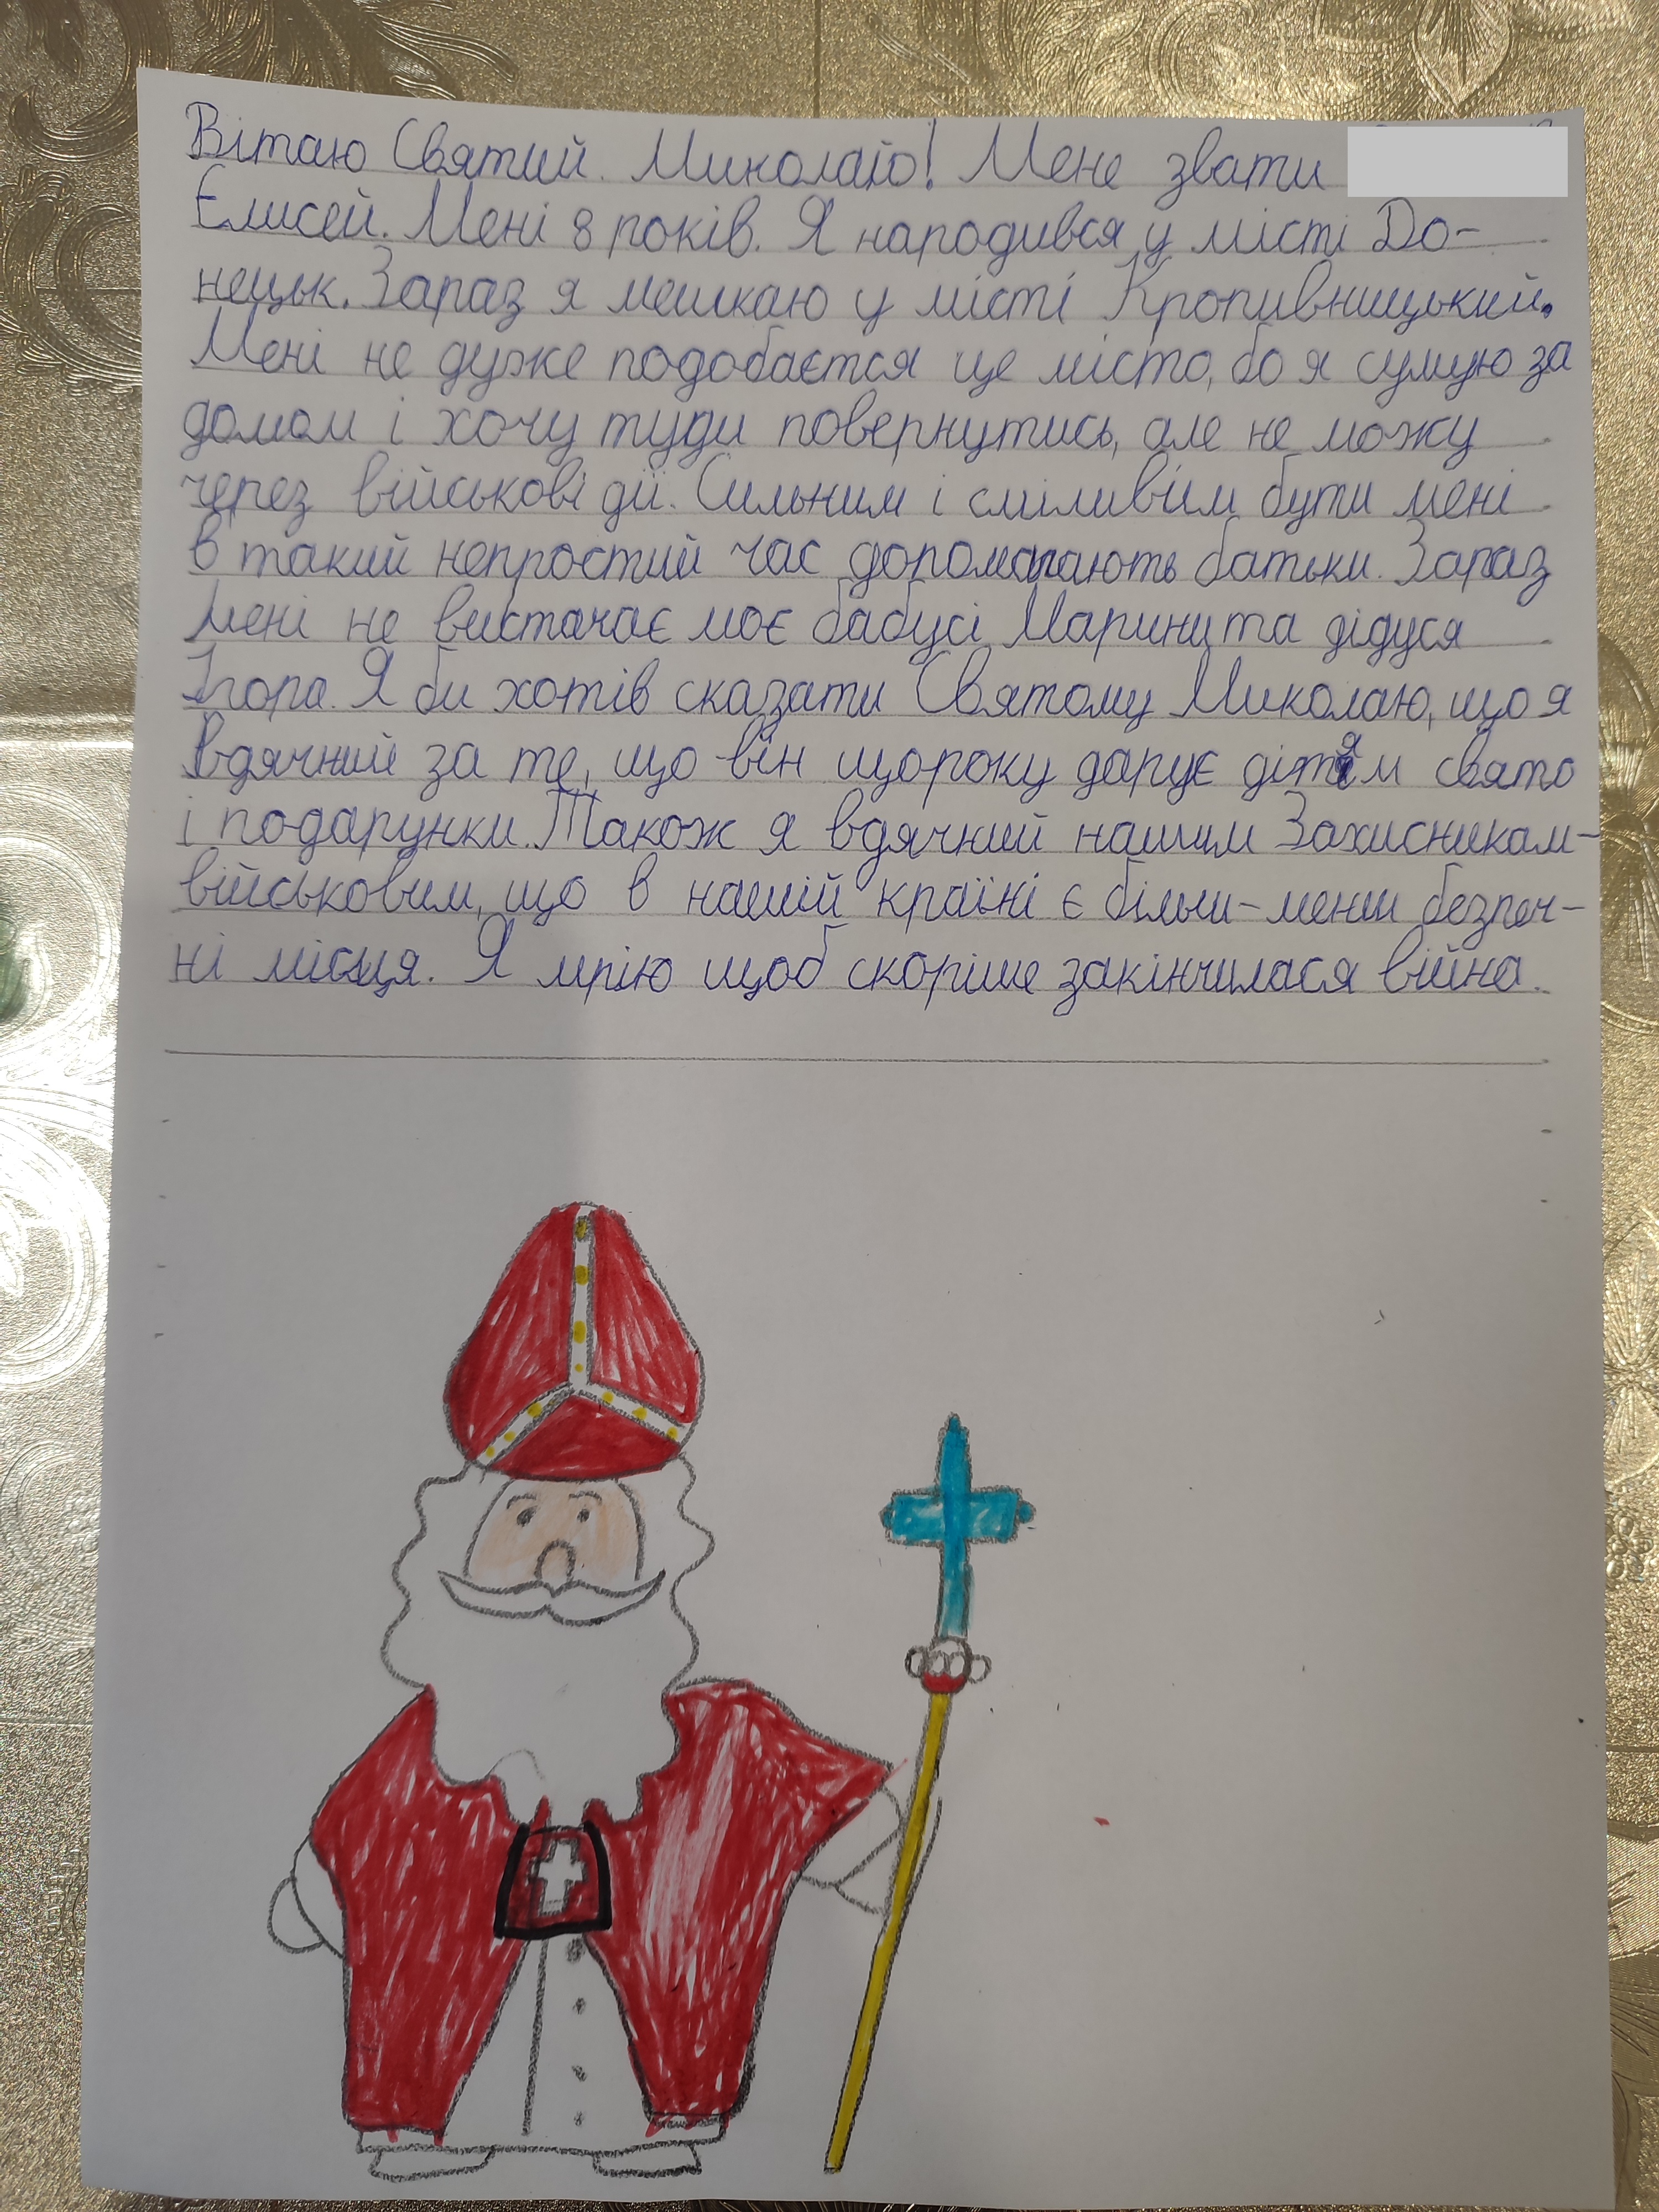 Вітаю Святий Миколаю! Мене звати
Єлисей. Мені 8 років. Я народився у місті До-
нецьк. Зараз я мешкаю у місті Кропивницький.
Мені не дуже подобається це місто, бо я сумую за
домом і хочу туди повернутись, але не можу
через військові дії. Сильним і сміливим бути мені
в такий непростий час допомагають батьки. Зараз
мені не вистачає моє бабусі Марини та дідуся
Ігора. Я би хотів сказати Святому Миколаю, що я
вдячний за те, що він щороку дарує дітям свято
і подарунки. Також я вдячний нашим Захисникам-
військовим, що в нашій країні є більш-менш безпеч-
ні місця. Я мрію щоб скоріше закінчилася війна.